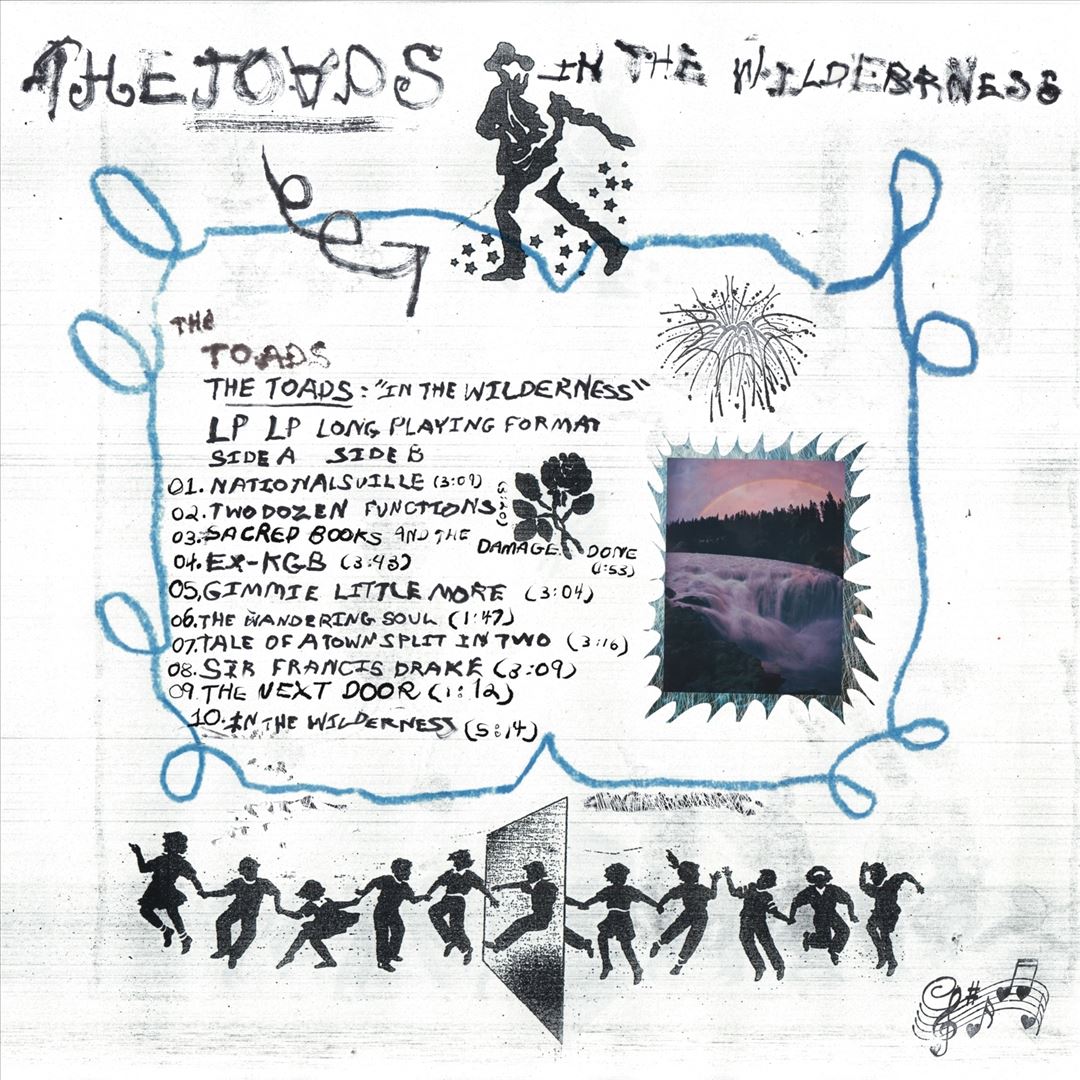 THE TOADS
IN THE WILDERNESS
THE
TOADS
THE TOADS: "IN THE WILDERNESS"
LP LP LONG PLAYING FORMAT
SIDE A SIDE B
01. NATIONALSVILLE (3:09)
02. TWO DOZEN FUNCTIONS
03. SACRED BOOKS AND THE DAMAGE DONE (1:53)
04. EX-KGB (3:43)
05, GIMMIE LITTLE MORE (3:04)
06. THE WANDERING SOUL (1:47)
07. TALE OF A TOWN SPLIT IN TWO (3:16)
08. SIR FRANCIS DRAKE (3:09)
09. THE NEXT DOOR (1:12)
10. IN THE WILDERNESS (5:14)